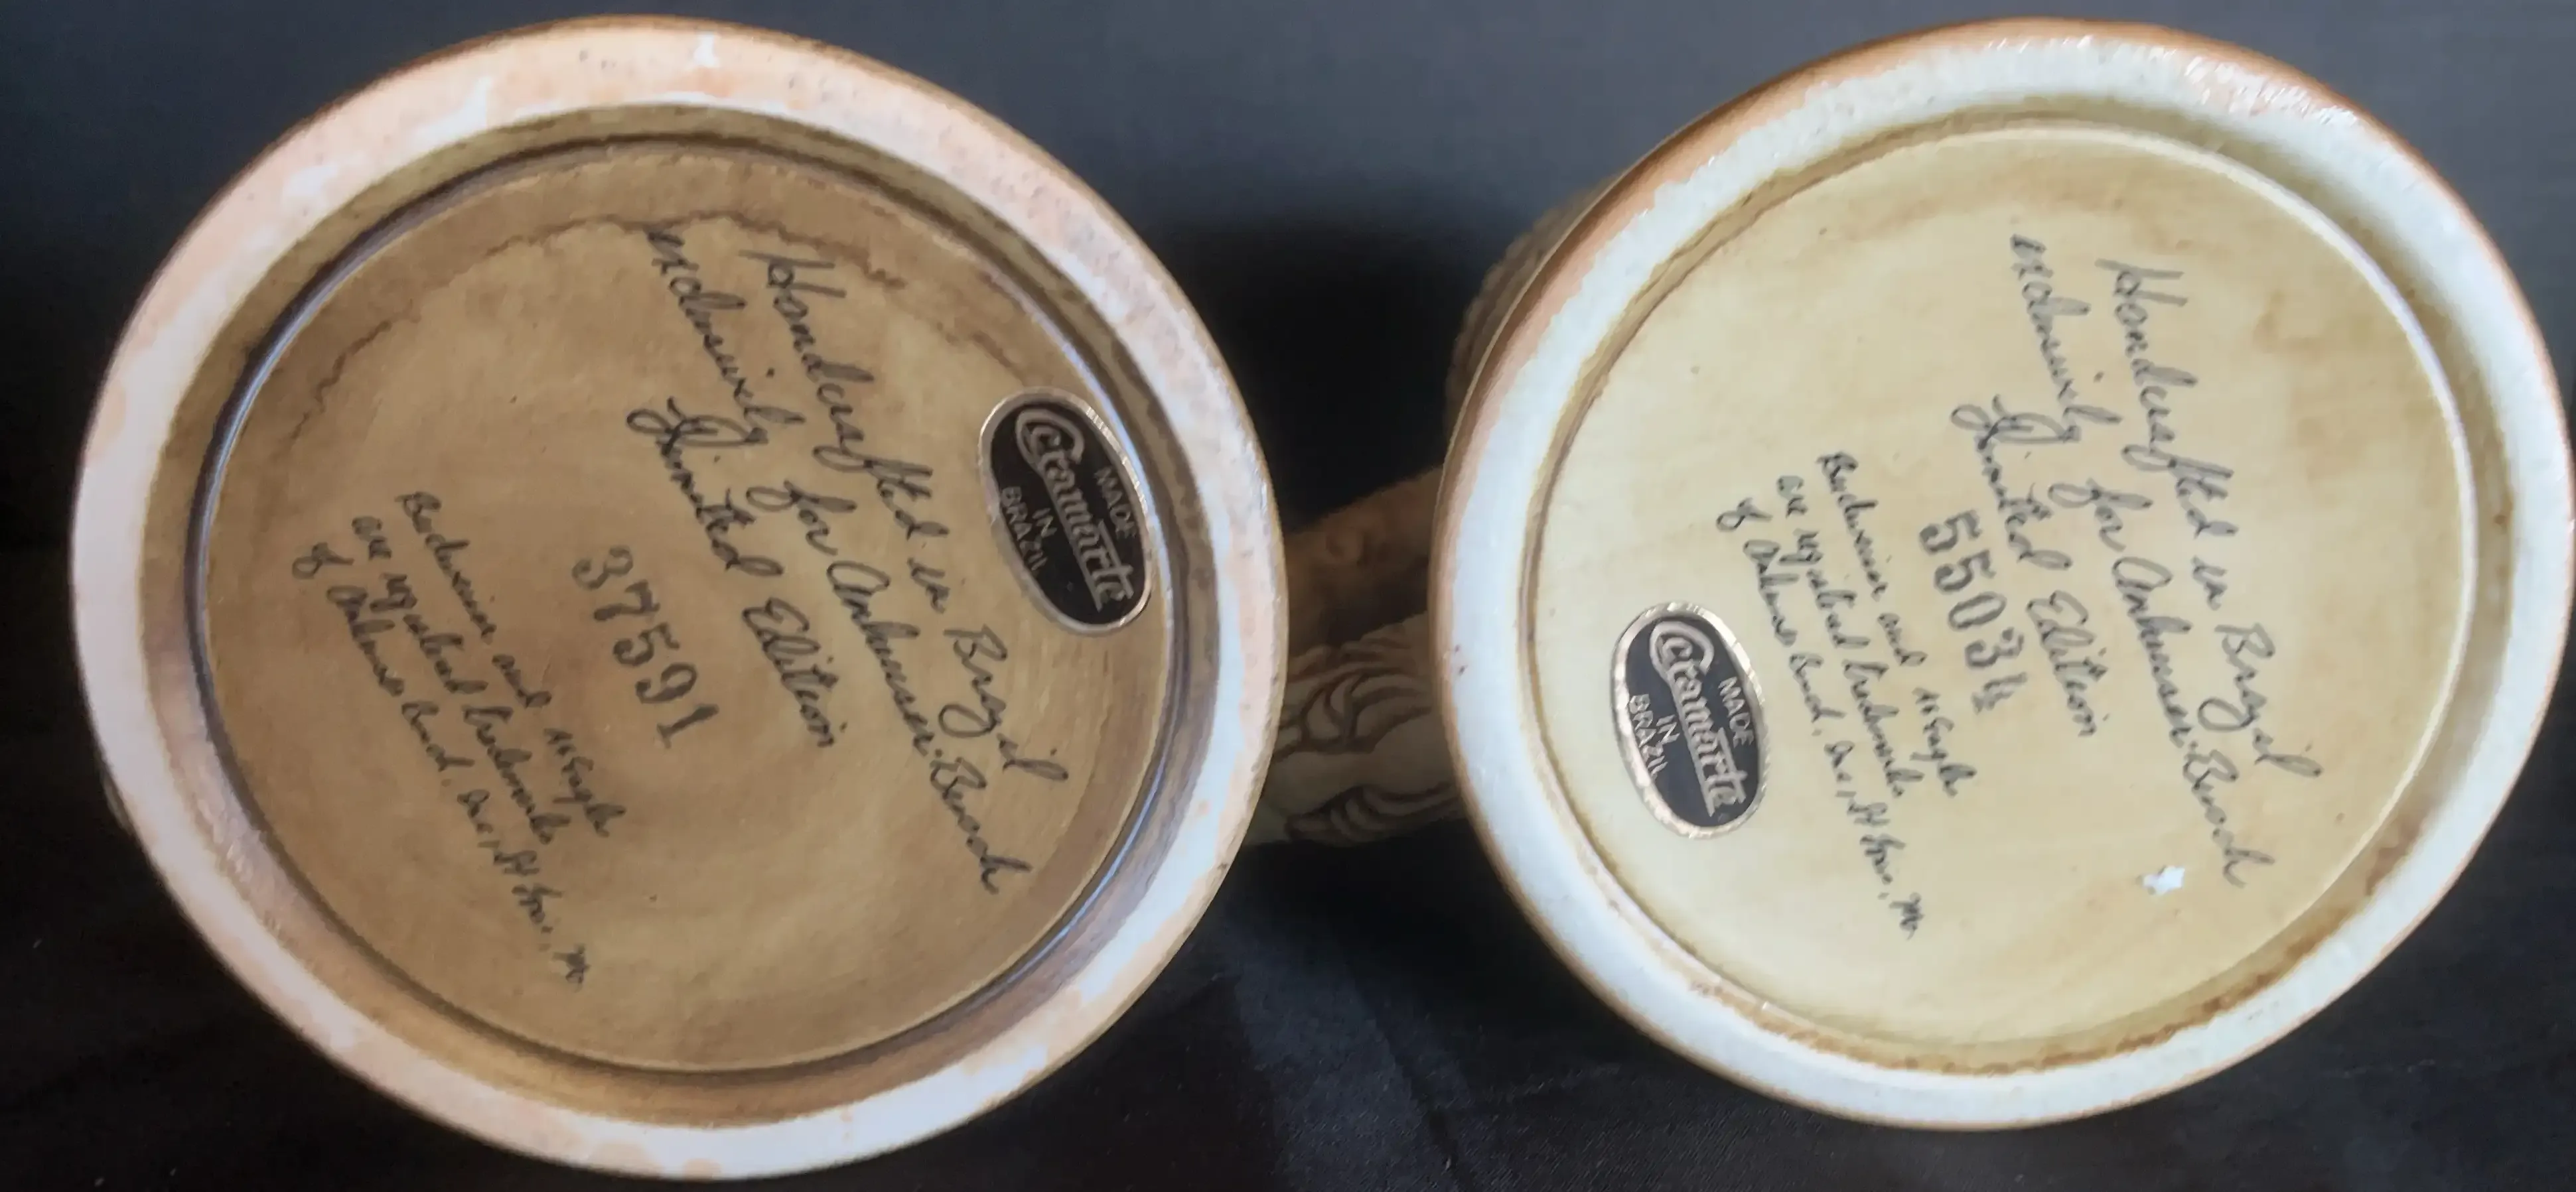 Handcrafted in Brazil
exclusively for Anheuser-Busch
Limited Edition
37591
Budweiser and A & Eagle
are registered trademarks
of Anheuser Busch, Inc., St Louis, Mo
MADE
Ceramarte
IN
BRAZIL
Handcrafted in Brazil
exclusively for Anheuser-Busch
Limited Edition
55034
Budweiser and A & Eagle
are registered trademarks
of Anheuser Busch, Inc., St Louis, Mo
MADE
Ceramarte
IN
BRAZIL